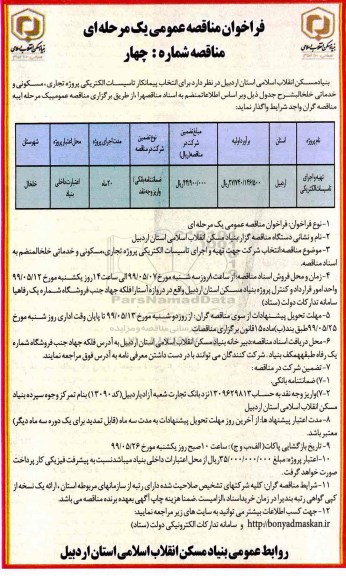 فراخوان مناقصه عمومی یک مرحله ای
مناقصه شماره : چهار
بنیاد مسکن انقلاب اسلامی استان اردبیل در نظر دارد برای انتخاب پیمانکار تاسیسات الکتریکی پروژه تجاری، مسکونی و
خدماتی خلخال بشرح جدول ذیل و براساس اطلاعات منضم به اسناد مناقصه را، از طریق برگزاری مناقصه عمومی یک مرحله ای به
مناقصه گران واجد شرایط واگذار نماید:
نام پروژه
استان
برآورد اولیه
مبلغ تضمین شرکت در مناقصه (ریال)
نوع تضمین شرکت در مناقصه
مدت اجرای پروژه
محل اعتبار پروژه
شهرستان
تهیه و اجرای تاسیسات الکتریکی
اردبیل
ضمانتنامه بانکی / واریز وجه نقد
۲۰ ماه
اعتبارات داخلی بنیاد
خلخال
۱- نوع فراخوان: فراخوان مناقصه عمومی یک مرحله ای
۲- نام و نشانی دستگاه مناقصه گزار: بنیاد مسکن انقلاب اسلامی استان اردبیل
۳- موضوع مناقصه: انتخاب شرکت جهت تهیه و اجرای تاسیسات الکتریکی پروژه تجاری، مسکونی و خدماتی خلخال منضم به
اسناد مناقصه.
۴- زمان و محل فروش اسناد مناقصه: از ساعت ۸ روز سه شنبه مورخ ۹۹/۰۵/۰۷ الی ساعت ۱۴ روز یکشنبه مورخ ۹۹/۰۵/۱۲
واحد امور قرارداد و کنترل پروژه بنیاد مسکن استان اردبیل واقع در دروازه آستارا فلکه جهاد جنب فروشگاه شماره یک رفاه یا
سامانه تدارکات دولت (ستاد)
۵- مهلت تحویل پیشنهادات از سوی مناقصه گران: از روز دوشنبه مورخ ۹۹/۰۵/۱۳ تا پایان وقت اداری روز شنبه مورخ
۹۹/۰۵/۲۵ طبق بند (ب) ماده ۱۵ قانون برگزاری مناقصات.
۶- محل دریافت اسناد مناقصه: دبیرخانه بنیاد مسکن انقلاب اسلامی استان اردبیل به آدرس فلکه جهاد جنب فروشگاه شماره
یک رفاه طبقه همکف بنیاد. شرکت کنندگان می توانند با در دست داشتن معرفی نامه به آدرس فوق مراجعه نمایند.
۷- تضمین شرکت در مناقصه:
۷-۱) ضمانتنامه بانکی.
۷-۲) واریز وجه نقد به حساب ۱۳۰۹۶۲۹۸۱۳ نزد بانک تجارت شعبه آزادی اردبیل (کد ۱۳۰۹۰) بنام تمرکز وجوه سپرده بنیاد
مسکن انقلاب اسلامی استان اردبیل
۸- مدت اعتبار پیشنهادها: از آخرین روز مهلت تحویل پیشنهادات به مدت سه ماه (قابل تمدید برای یک دوره سه ماه دیگر)
معتبر باشد.
۹- تاریخ بازگشایی پاکات (الف، ب و ج): ساعت ۱۰ صبح روز یکشنبه مورخ ۹۹/۰۵/۲۶
۱۰- اعتبار پروژه: مبلغ ۳۵/۰۰۰/۰۰۰/۰۰۰ ریال از محل اعتبارات داخلی بنیاد میباشد نسبت به پیشرفت فیزیکی کار پرداخت
صورت خواهد گرفت.
۱۱- شرایط مناقصه گران: کلیه شرکتهای تشخیص صلاحیت شده دارای رتبه از سازمانهای مربوطه استان، ارائه یک نسخه از
کپی گواهی رتبه بندی در زمان خرید اسناد، الزامیست. ضمنا هزینه چاپ آگهی بعهده برنده مناقصه می باشد.
۱۲- جهت کسب اطلاعات بیشتر می توانید به سایت های زیر مراجعه نمایید:
http://bonyadmaskan.ir و سامانه تدارکات الکترونیکی دولت (ستاد)
روابط عمومی بنیاد مسکن انقلاب اسلامی استان اردبیل